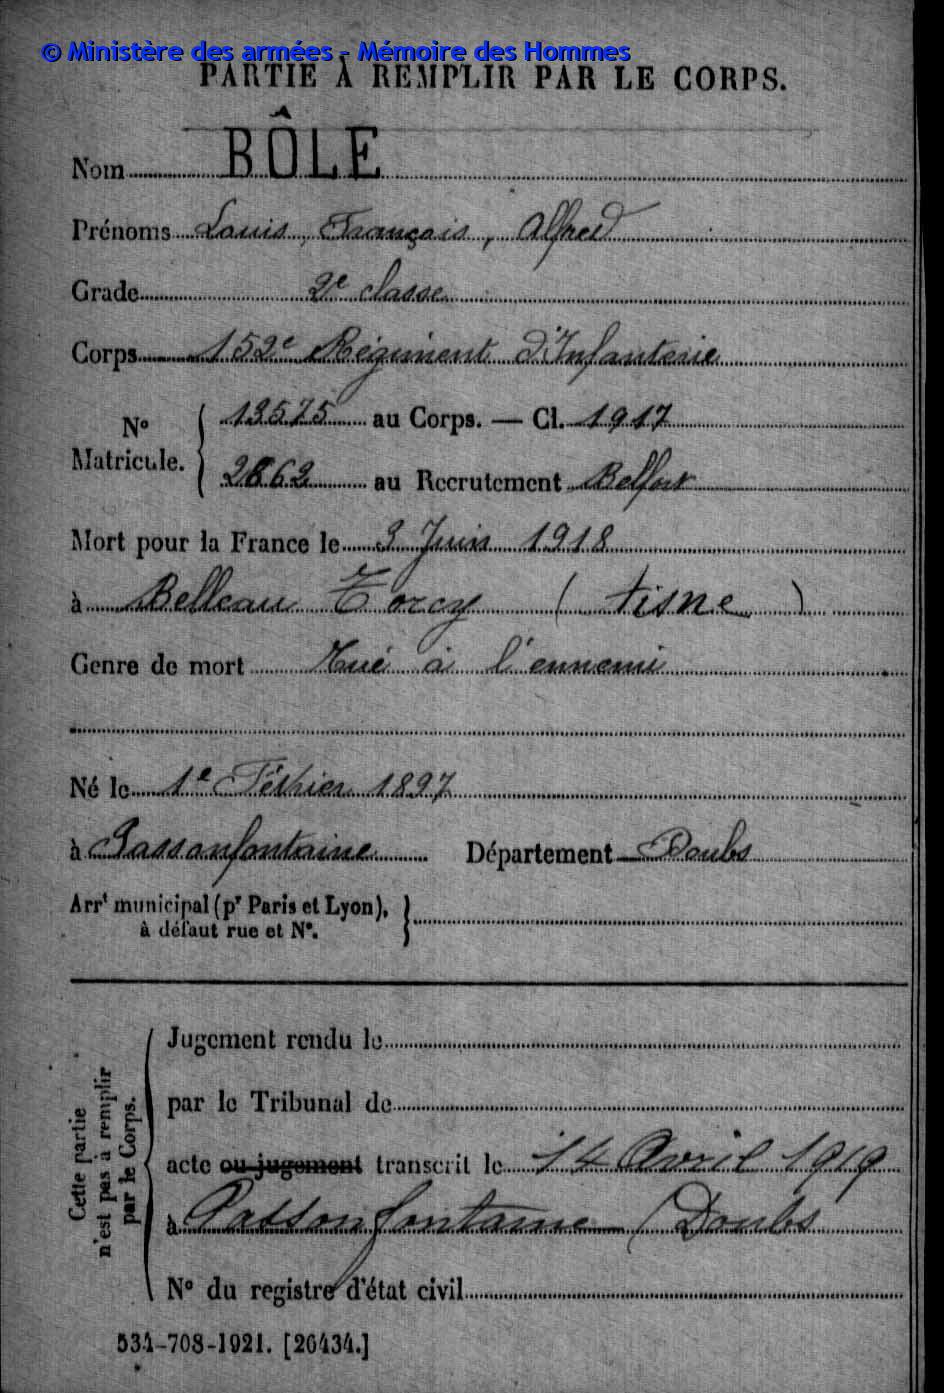 © Ministère des armées - Mémoire des Hommes
PARTIE À REMPLIR PAR LE CORPS.
Nom BÔLE
Prénoms Louis, François, Alfred
Grade 2e classe
Corps 152e Régiment d'Infanterie
No Matricule. { 13575 au Corps. — Cl. 1917
2862 au Recrutement Belfort
Mort pour la France le 3 Juin 1918
à Belleau Torcy (Aisne)
Genre de mort Tué à l'ennemi
Né le 1e Février 1897
à Passonfontaine Département Doubs
Arrt municipal (pr Paris et Lyon), }
à défaut rue et No.
Cette partie n'est pas à remplir par le Corps.
Jugement rendu le
par le Tribunal de
acte ou jugement transcrit le 14 Avril 1919
à Passonfontaine (Doubs
No du registre d'état civil
534-708-1921. [26434.]